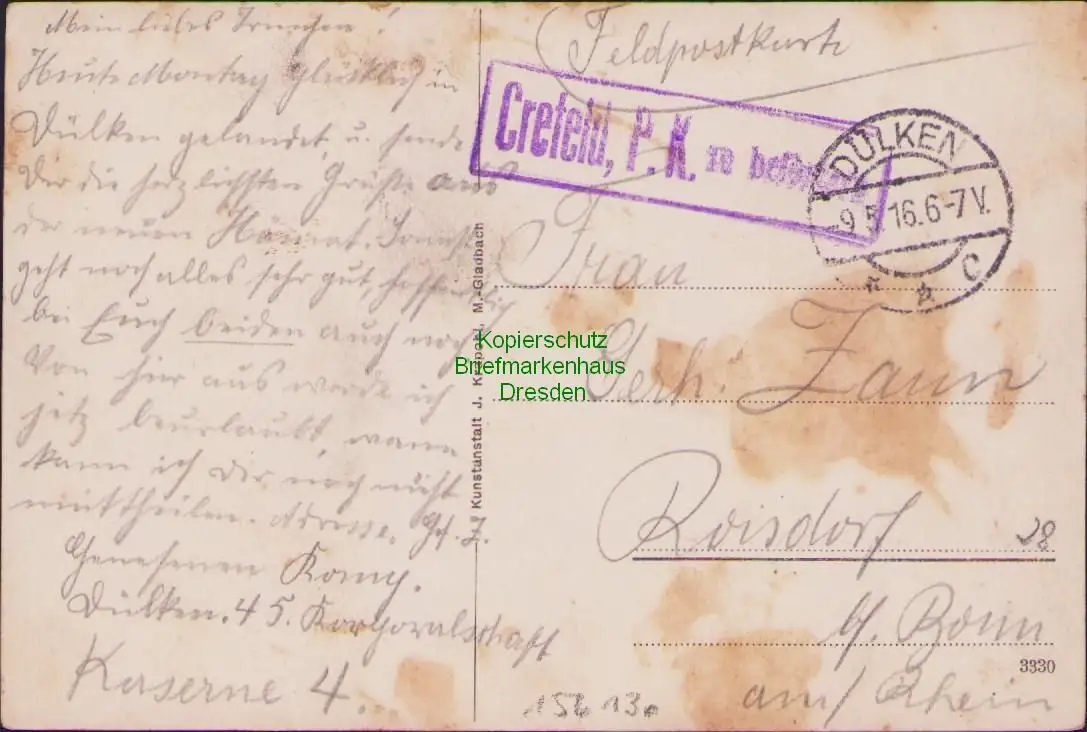 Mein liebes Trinchen!
Heute Montag glücklich in
Dülken gelandet, u. sende
Dir die herzlichsten Grüße aus
der neuen Heimat.
geht noch alles sehr gut, hoffentlich
bei Euch beiden auch noch.
Von hier aus werde ich
jetz beurlaubt, wann
kann ich Dir noch nicht
mittheilen. Adresse. Gef. Z.
Genesenen Komp.
Dülken. 45. Korporalschaft
Kaserne 4.
Kunstanstalt J. M.-Gladbach
Feldpostkarte
Crefeld, P. K. zu befördern
DÜLKEN
-9.5.16.6-7V.
C
Frau
Gerh. Zaun
Roisdorf
28
b/. Bonn
am/ Rhein
3330
156 130
Kopierschutz
Briefmarkenhaus
Dresden